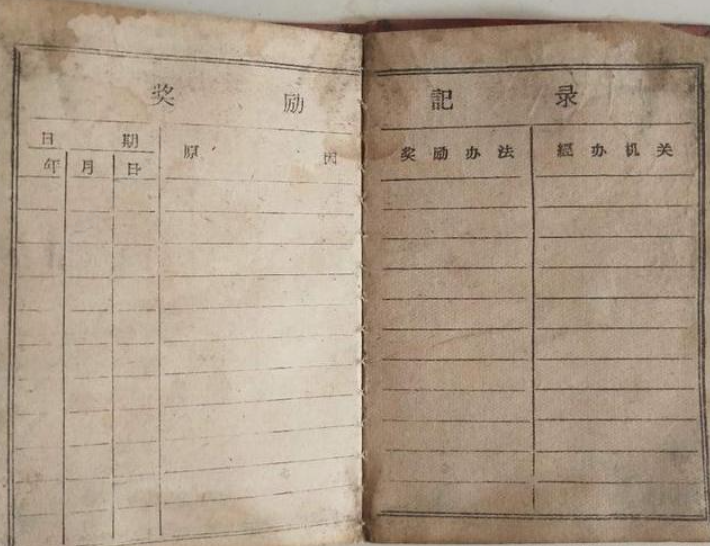 奖励記录
日期
年 月 日
原因
奖励办法
經办机关